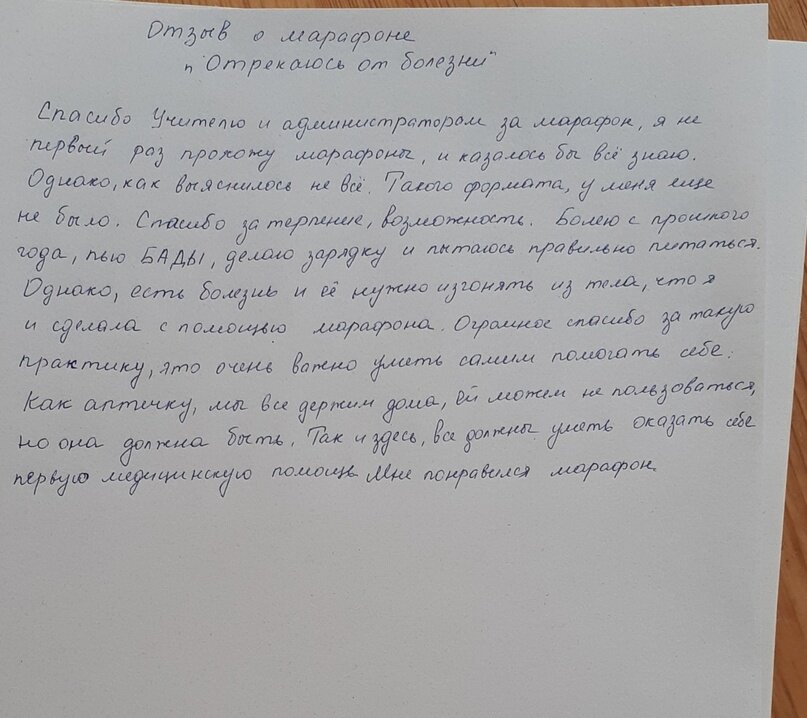 Отзыв о марафоне
"Отрекаюсь от болезни"
Спасибо Учителю и администраторам за марафон, я не
первый раз прохожу марафоны, и казалось бы всё знаю.
Однако, как выяснилось не всё. Такого формата, у меня еще
не было. Спасибо за терпение, возможность. Болею с прошлого
года, пью БАДЫ, делаю зарядку и пытаюсь правильно питаться.
Однако, есть болезнь и её нужно изгонять из тела, что я
и сделала с помощью марафона. Огромное спасибо за такую
практику, это очень важно уметь самим помогать себе.
Как аптечку, мы все держим дома, ей можем не пользоваться,
но она должна быть. Так и здесь, все должны уметь оказать себе
первую медицинскую помощь. Мне понравился марафон.